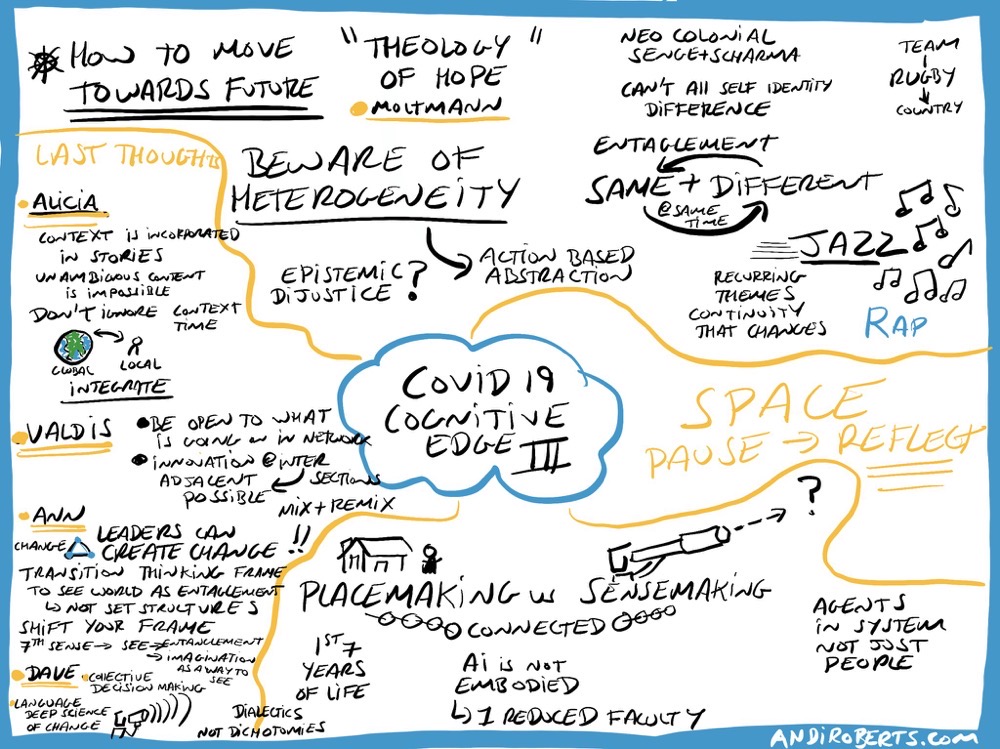 HOW TO MOVE
TOWARDS FUTURE
"THEOLOGY"
OF HOPE
MOLTMANN
NEO COLONIAL
SENGE+SCHARMA
CAN'T ALL SELF IDENTITY
DIFFERENCE
TEAM
RUGBY
COUNTRY
ENTAGLEMENT
SAME + DIFFERENT
@SAME
TIME
JAZZ
RECURRING
THEMES
CONTINUITY
THAT CHANGES
RAP
BEWARE OF
HETEROGENEITY
ACTION BASED
ABSTRACTION
EPISTEMIC
DIJUSTICE ?
LAST THOUGHTS
ALICIA
CONTEXT IS INCORPORATED
IN STORIES
UNAMBIGIOUS CONTENT
IS IMPOSSIBLE
DON'T IGNORE CONTEXT
TIME
GLOBAL
LOCAL
INTEGRATE
VALDIS
BE OPEN TO WHAT
IS GOING ON IN NETWORK
INNOVATION @ INTER
SECTIONS
ADJACENT
POSSIBLE
MIX + REMIX
ANN
LEADERS CAN
CHANGE CREATE CHANGE !!
TRANSITION THINKING FRAME
TO SEE WORLD AS ENTAGLEMENT
NOT SET STRUCTURES
SHIFT YOUR FRAME
7TH SENSE → SEE → ENTANGLEMENT
→ IMAGINATION
AS A WAY TO
SEE
DAVE
COLLECTIVE
DECISION MAKING
LANGUAGE
DEEP SCIENCE
OF CHANGE
DIALECTICS
NOT DICHOTOMIES
COVID 19
COGNITIVE
EDGE III
SPACE
PAUSE → REFLECT
?
PLACEMAKING vs SENSEMAKING
CONNECTED
1ST 7
YEARS
OF LIFE
Ai IS NOT
EMBODIED
↳ 1 REDUCED FACULTY
AGENTS
IN SYSTEM
NOT JUST
PEOPLE
ANDIROBERTS.COM